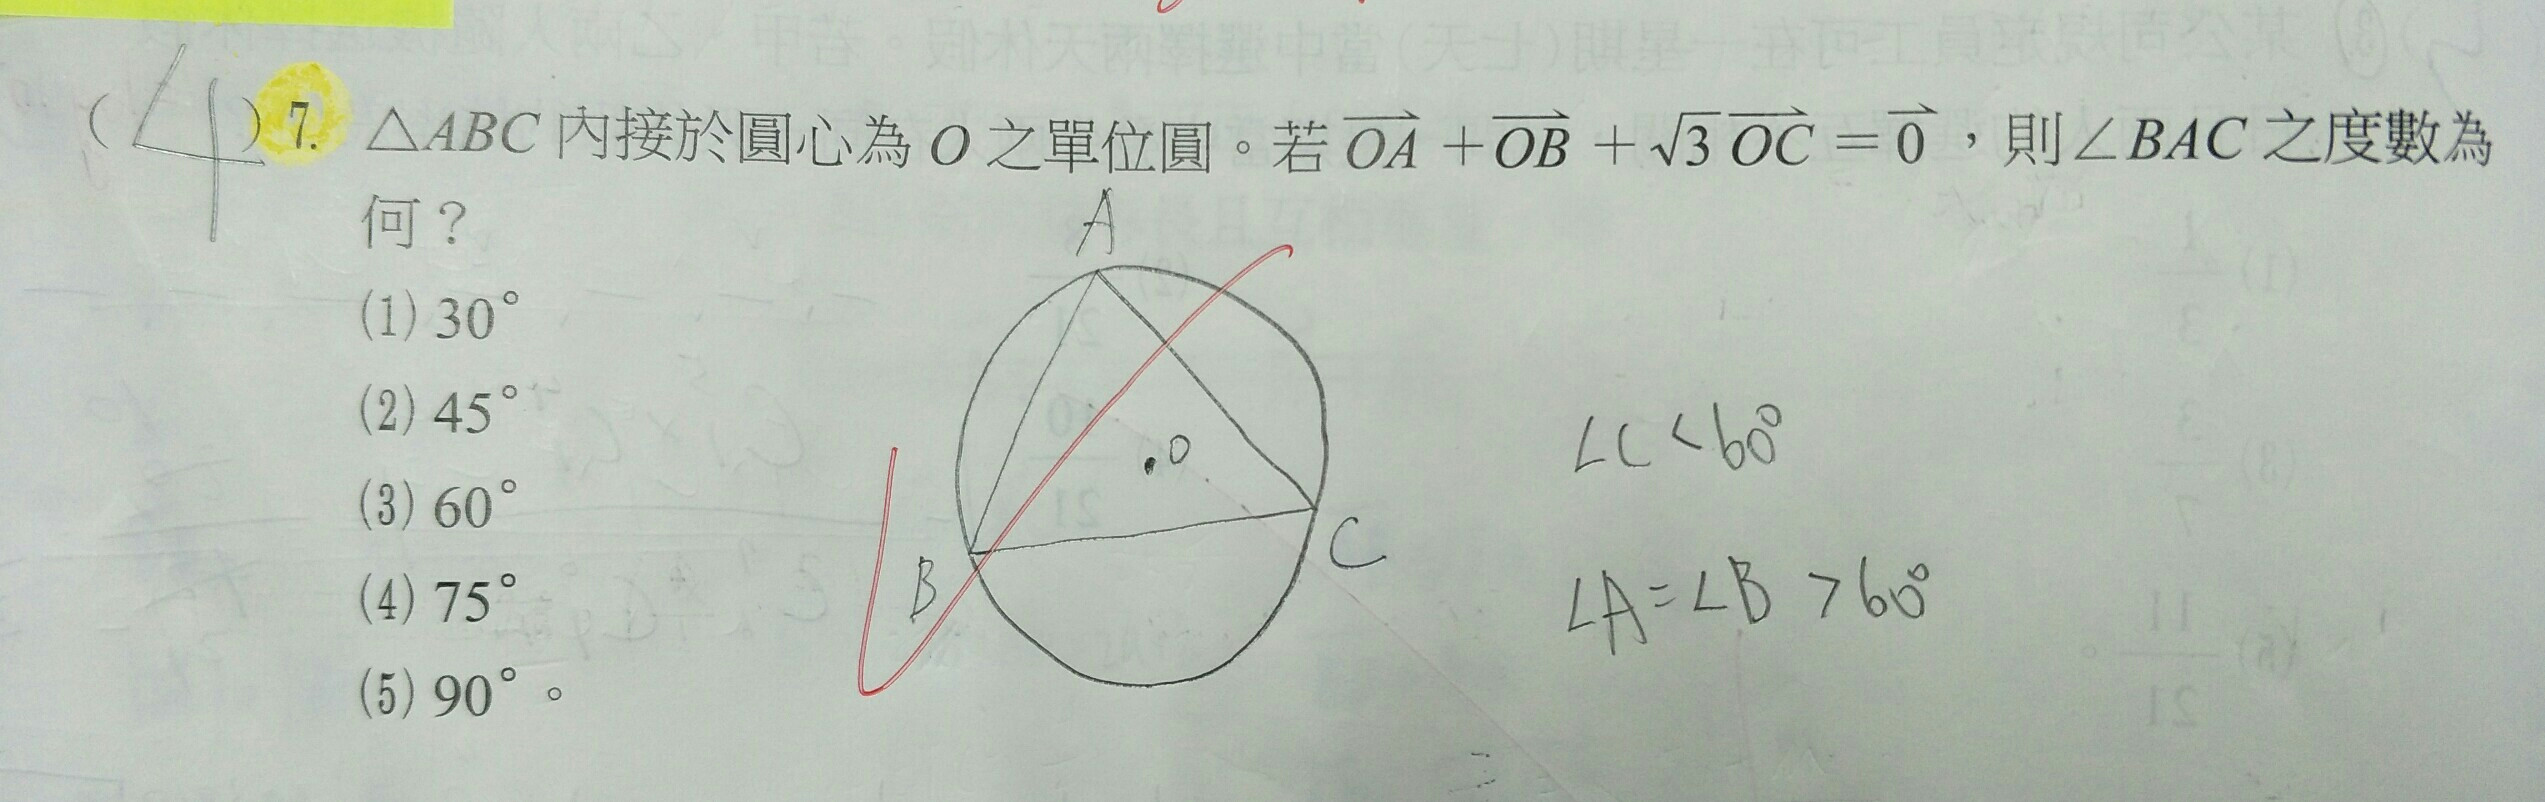 ( 4 ) 7. △ABC 內接於圓心為 O 之單位圓。若 $\overrightarrow{OA}+\overrightarrow{OB}+\sqrt{3}\,\overrightarrow{OC}=\overrightarrow{0}$,則∠BAC 之度數為
何?
(1) 30°
(2) 45°
(3) 60°
(4) 75°
(5) 90°。
A
O
B
C
∠C < 60°
∠A = ∠B > 60°